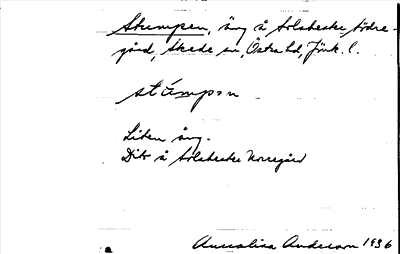 Stumpen, äng å Solaberke Södre-
gård, Skede sn, Östra hd, Jönk. l.
stämpən
Liten äng.
Dito å Solaberke Norregård
Annalisa Anderson 1936